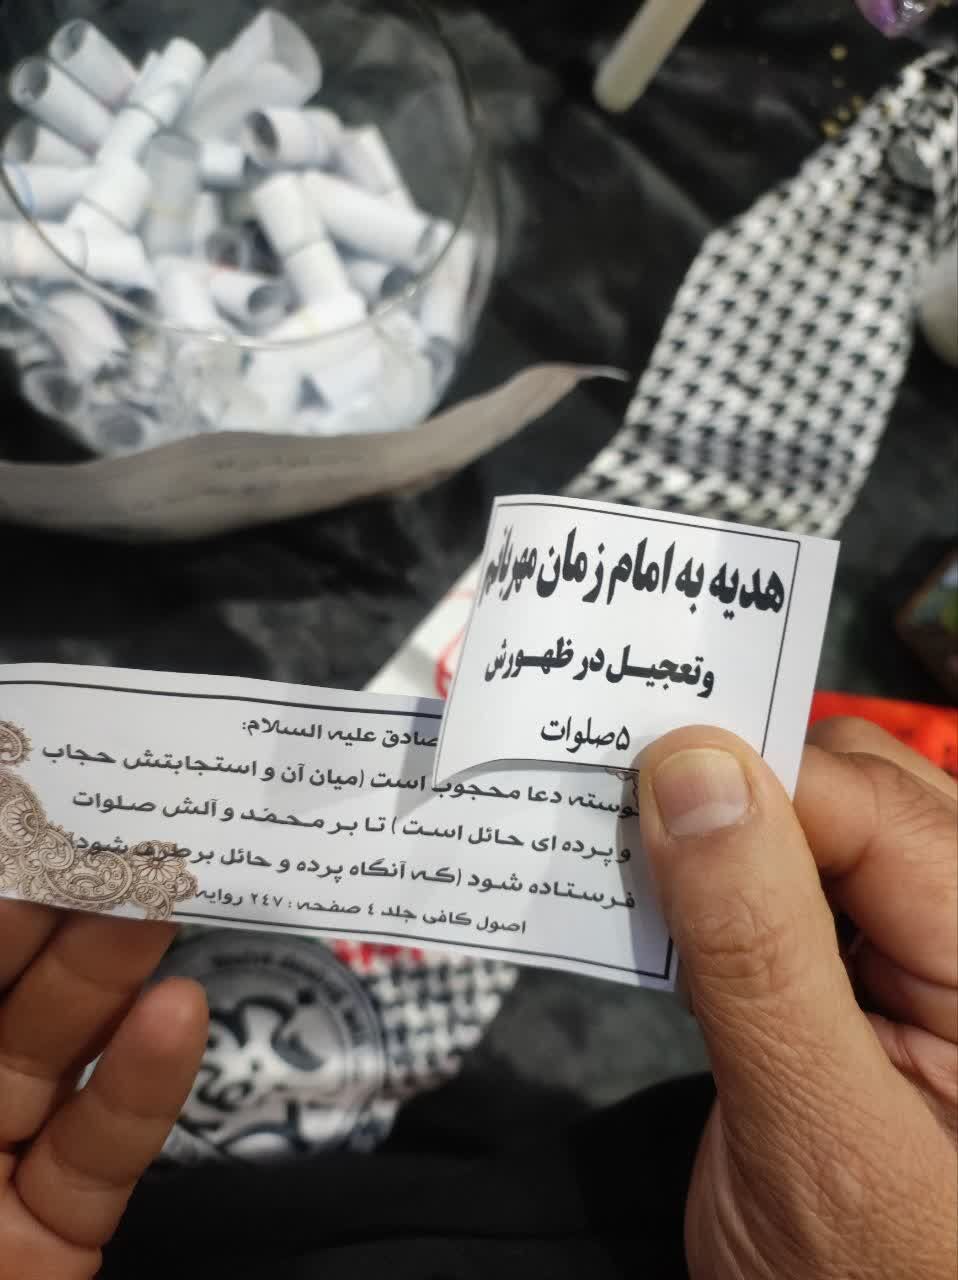 هدیه به امام زمان مهربانم
وتعجیل در ظهورش
۵صلوات
صادق علیه السلام:
دعا محجوب است (میان آن و استجابتش حجاب
و پرده ای حائل است ) تا بر محمّد و آلش صلوات
فرستاده شود (که آنگاه پرده و حائل برطرف شود)
اصول کافی جلد ٤ صفحه : ٢٤٧ روایه